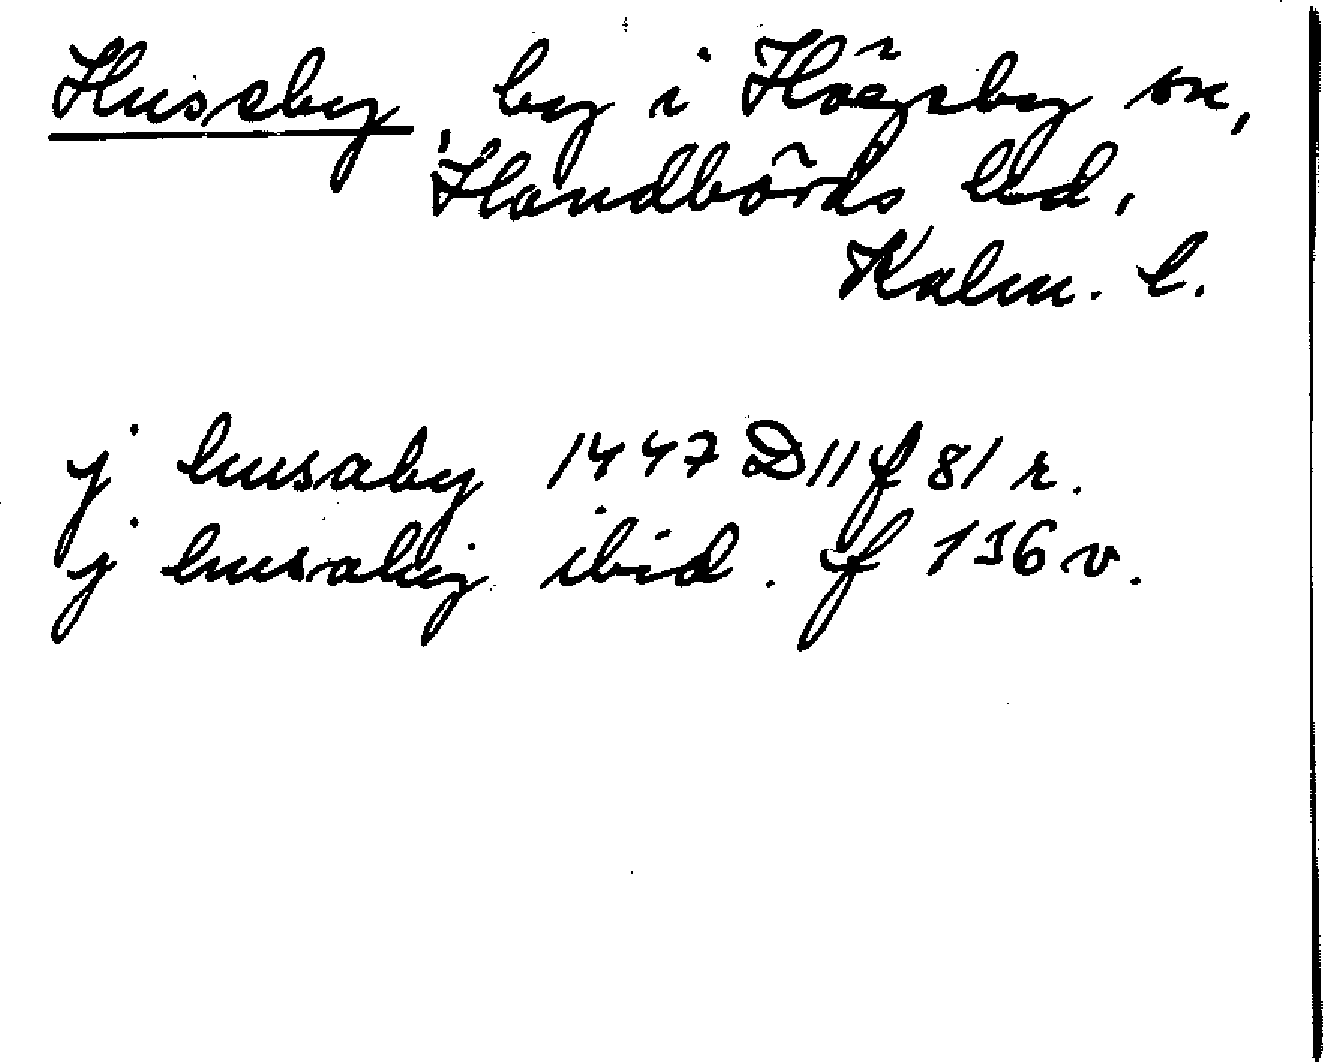 Huseby, by i Högsby sn,
Handbörds hd,
Kalm. l.
j husaby 1447 D 11 f 81 r.
j husaby ibid. f 136 v.